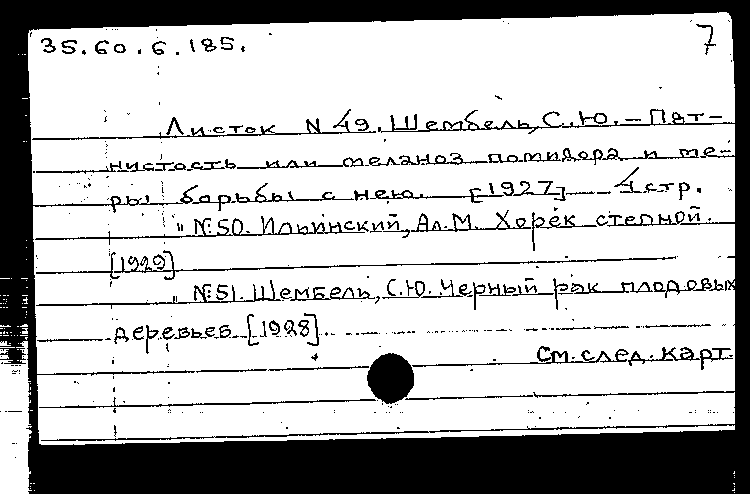 35.60.6.185.
7
Листок N 49. Шембель, С.Ю. – Пят-
нистость или меланоз помидора и ме-
ры борьбы с нею. [1927] 4 стр.
" №50. Ильинский, Ал.М. Хорек степной.
[1929]
" №51. Шембель, С.Ю. Черный рак плодовых
деревьев [1928].
См. след. карт.